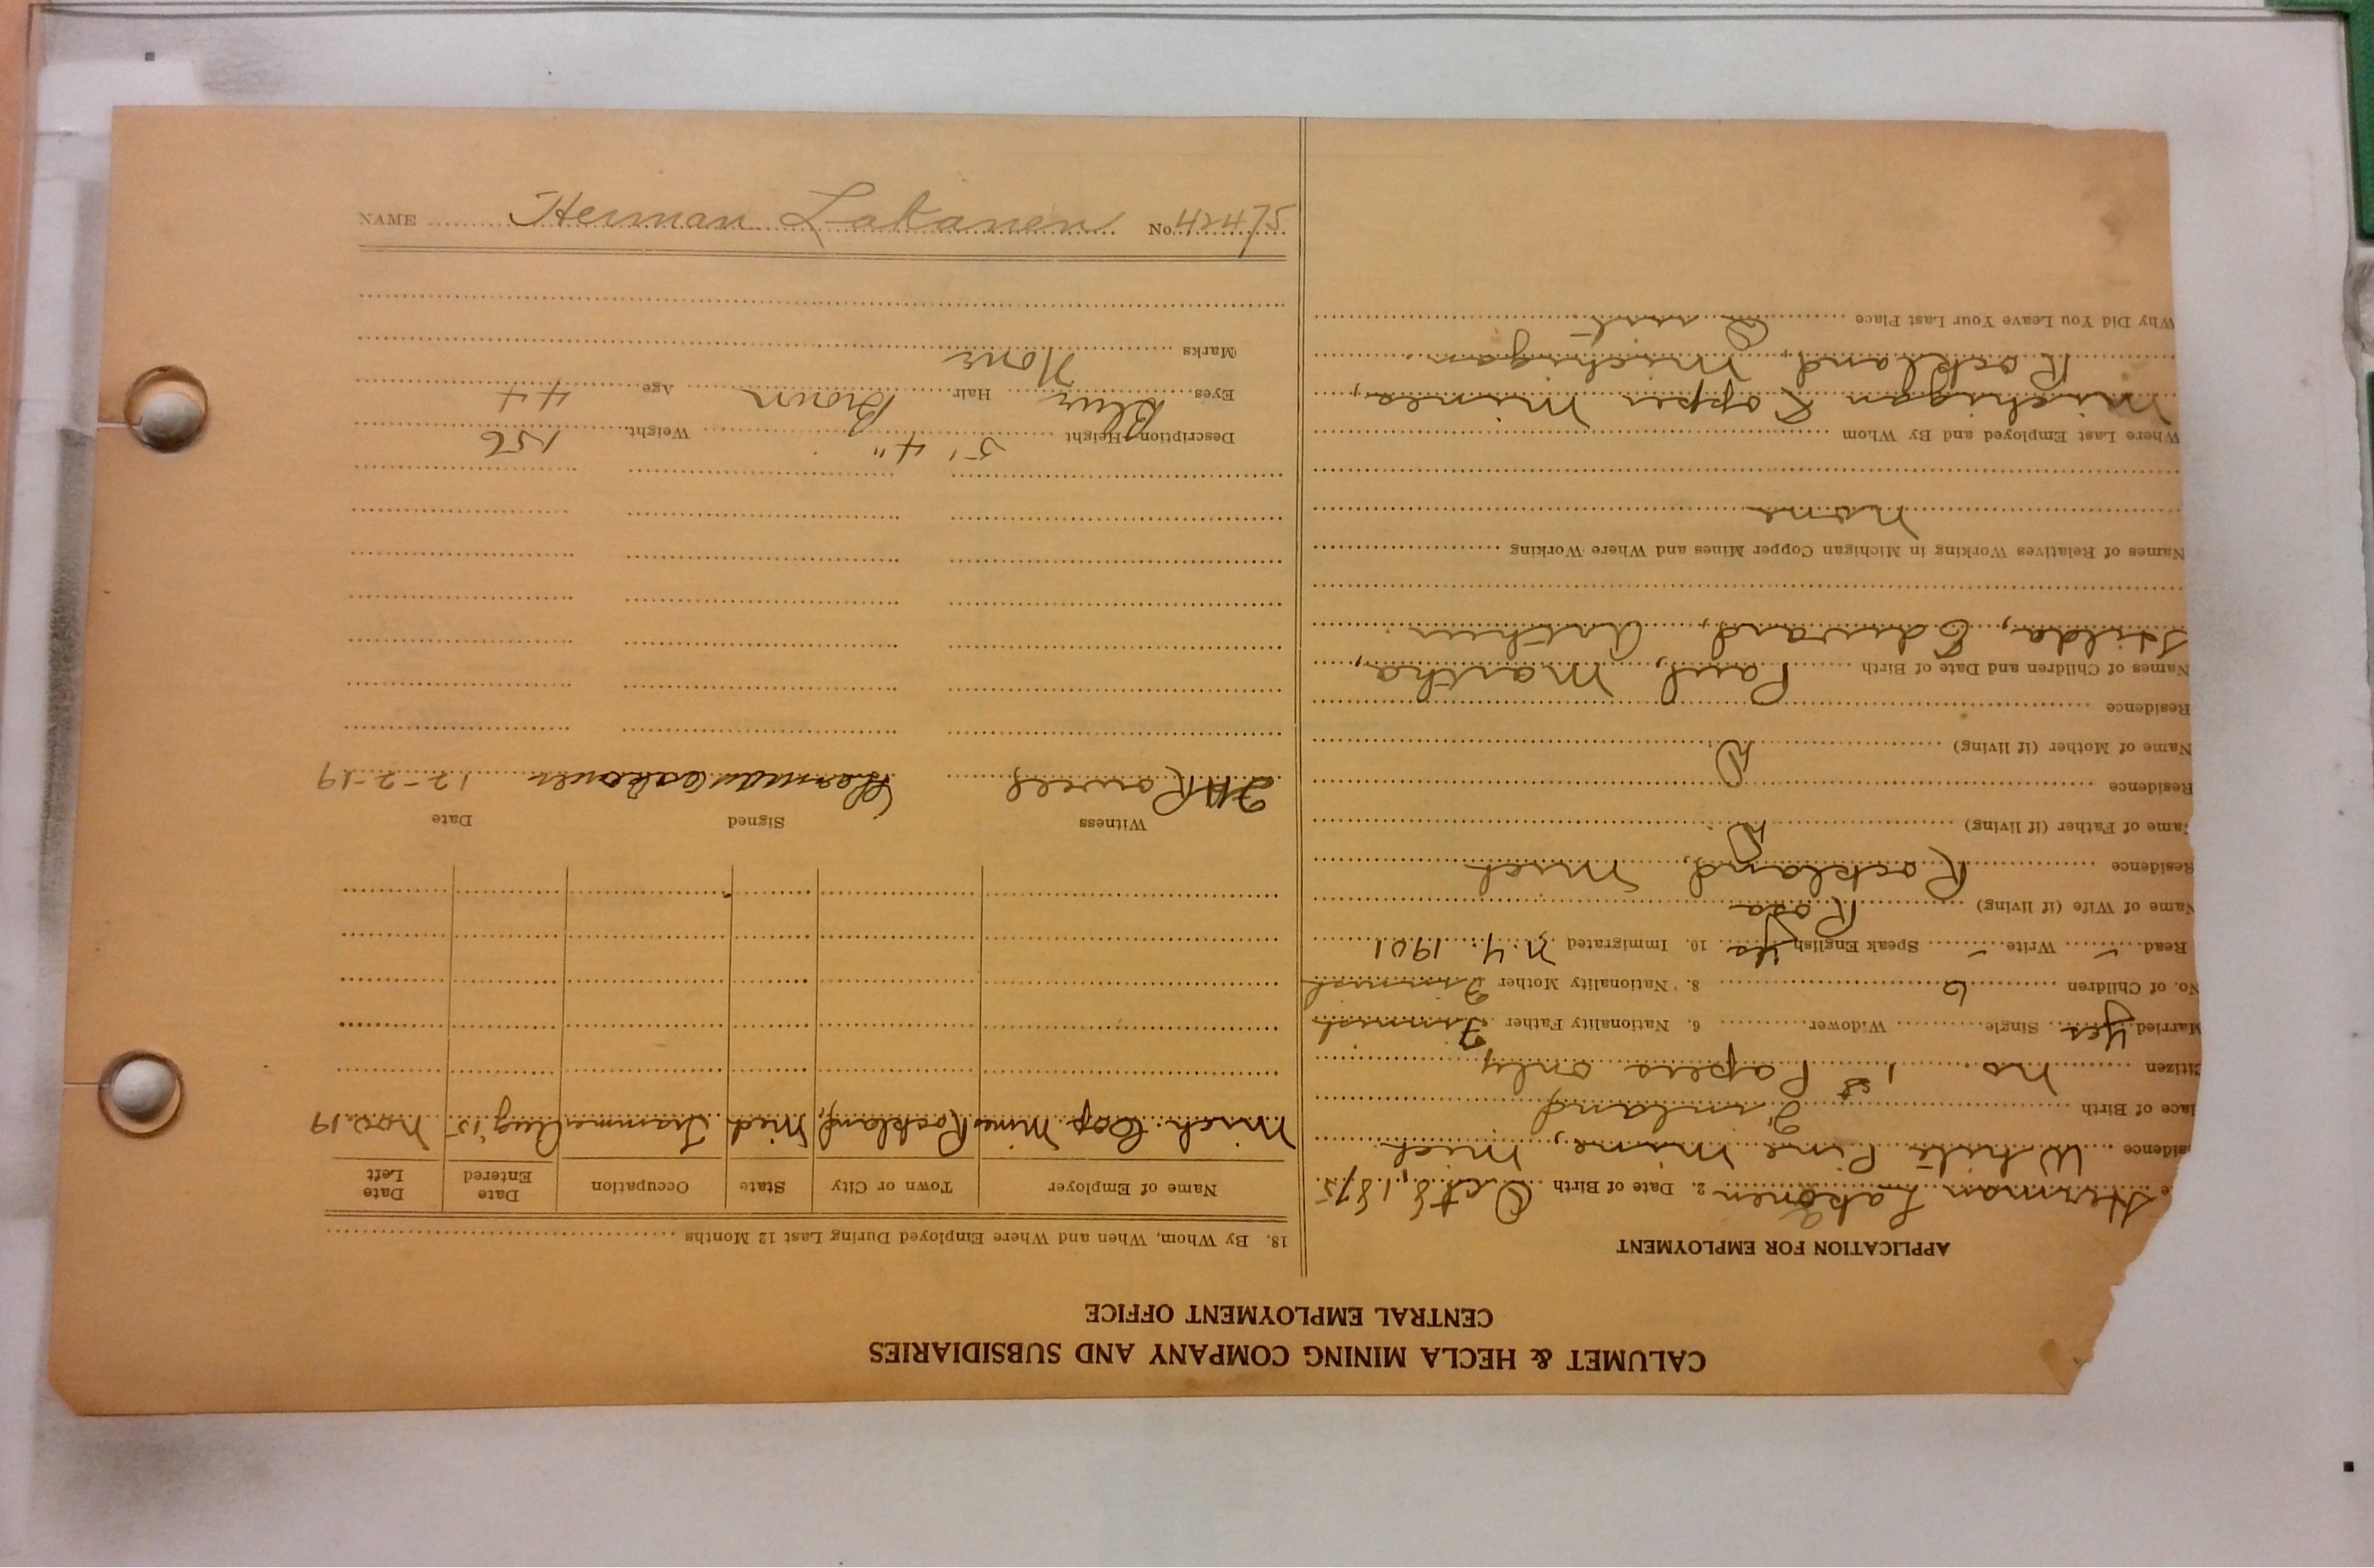 CALUMET & HECLA MINING COMPANY AND SUBSIDIARIES
CENTRAL EMPLOYMENT OFFICE
APPLICATION FOR EMPLOYMENT
e Herman Lakanen 2. Date of Birth Oct 8, 1875
sidence White Pine Mine, Mich
lace of Birth Finland
itizen no 1st Papers only
Married Yes Single Widower 6. Nationality Father Finnish
No. of Children 6 8. Nationality Mother Finnish
Read - Write - Speak English Yes 10. Immigrated N.Y. 1901
Name of Wife (if living) Rosa
Residence Rockland, Mich
ame of Father (if living) D
Residence
Name of Mother (if living) D
Residence
Names of Children and Date of Birth Paul, Martha,
Hilda, Edward, Arthur
Names of Relatives Working in Michigan Copper Mines and Where Working
None
Where Last Employed and By Whom
Michigan Copper Mines,
Rockland, Michigan
Why Did You Leave Your Last Place Quit
18. By Whom, When and Where Employed During Last 12 Months
Name of Employer Town or City State Occupation Date Entered Date Left
Mich. Cop. Mines Rockland, Mich Trammer Aug '15 Nov. 19
Witness Signed Date
Rowe Herman 12-2-19
Description—Height 5' 4" Weight 156
Eyes Blue Hair Brown Age 44
Marks None
NAME Herman Lakanen No. 42475